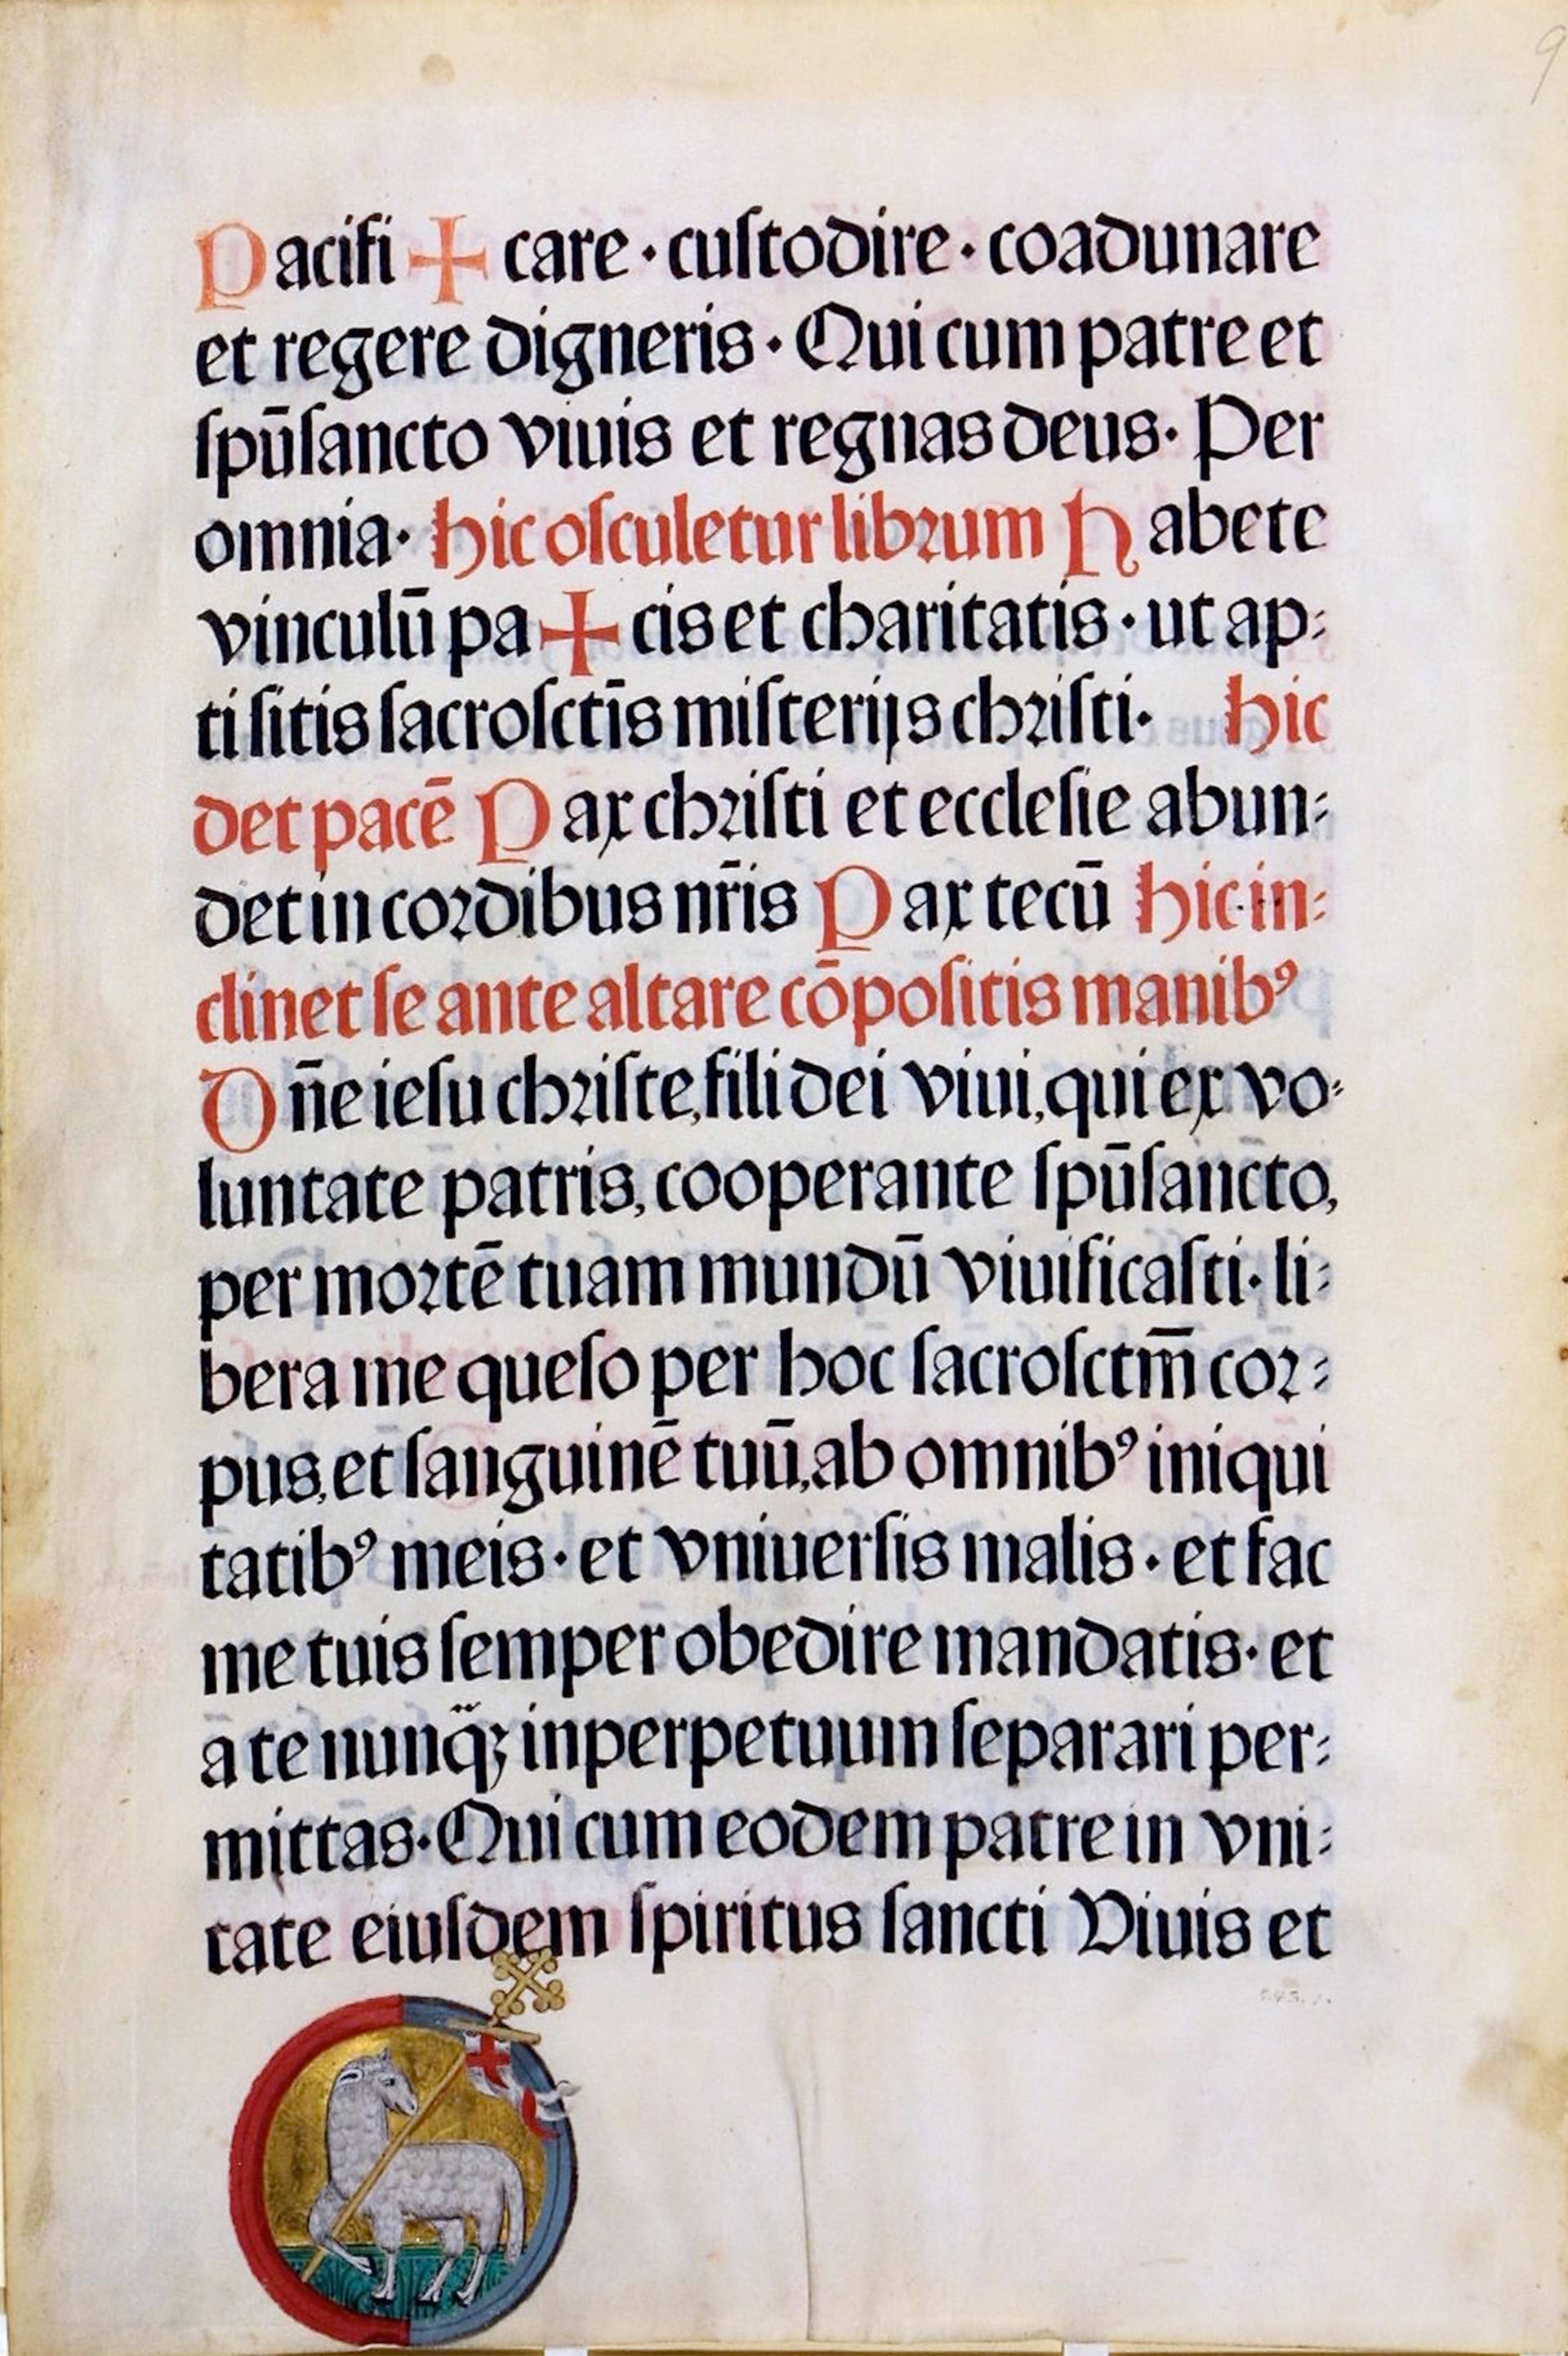 9
Pacifi + care · cuſtodire · coadunare
et regere digneris · Qui cum patre et
ſpūſancto viuis et regnas deus · Per
omnia · hic oſculetur librum Habete
vinculū pa + cis et charitatis · ut ap⸗
ti ſitis ſacroſctīs miſterijs chriſti · hic
det pacē Pax chriſti et eccleſie abun⸗
det in cordibus nr̄is Pax tecū hic in⸗
clinet ſe ante altare cōpoſitis manibꝰ
Dn̄e ieſu chriſte, fili dei viui, qui ex vo⸗
luntate patris, cooperante ſpūſancto,
per mortē tuam mundū viuificaſti · li⸗
bera me queſo per hoc ſacroſctm̄ cor⸗
pus, et ſanguinē tuū, ab omnibꝰ iniqui
tatibꝰ meis · et vniuerſis malis · et fac
me tuis ſemper obedire mandatis · et
a te nunq̈ꝫ inperpetuum ſeparari per⸗
mittas · Qui cum eodem patre in vni⸗
tate eiuſdem ſpiritus ſancti Viuis et